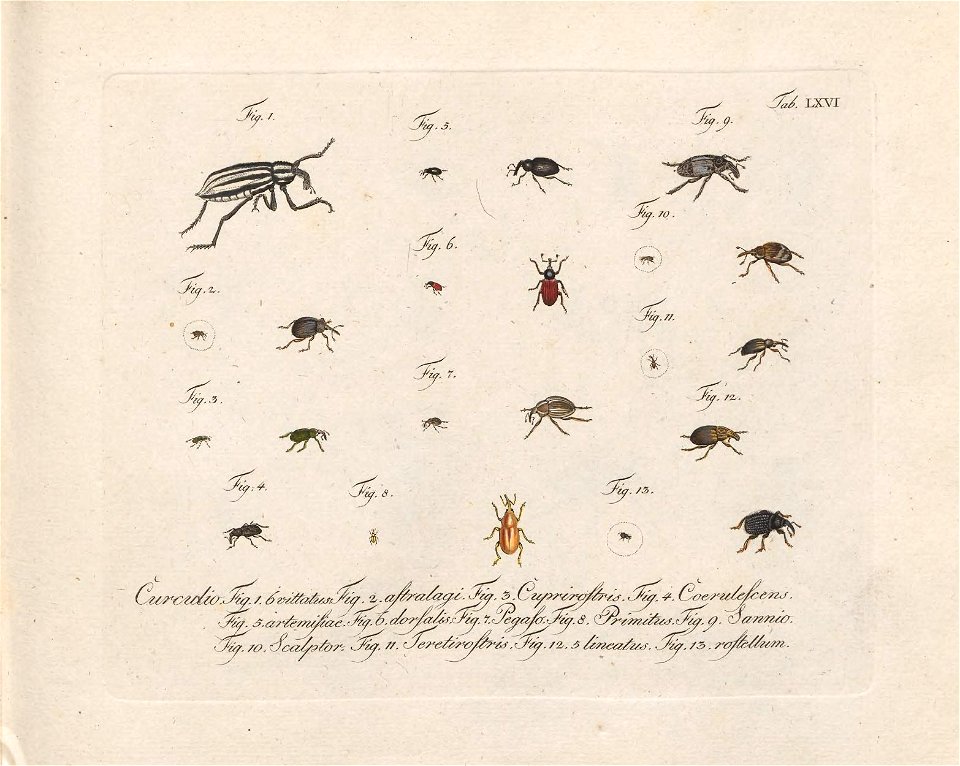 Tab. LXVI
Fig. 1.
Fig. 5.
Fig. 9.
Fig. 10.
Fig. 6.
Fig. 2.
Fig. 11.
Fig. 7.
Fig. 3.
Fig. 12.
Fig. 4.
Fig. 8.
Fig. 13.
Curculio. Fig. 1. 6 vittatus. Fig. 2. aſtralagi. Fig. 3. Cupriroſtris. Fig. 4. Coerulefcens.
Fig. 5. artemiſiae. Fig. 6. dorſalis. Fig. 7. Pegaſo. Fig. 8. Primitus. Fig. 9. Sannio.
Fig. 10. Scalptor. Fig. 11. Teretiroſtris. Fig. 12. 5 lineatus. Fig. 13. roſtellum.